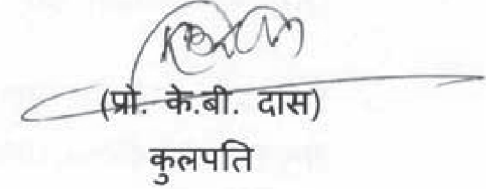 (प्रो. के.बी. दास)
कुलपति